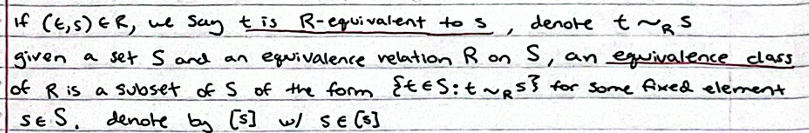 if (t,s) ∈ R, we say t is R-equivalent to s, denote t ~R s
given a set S and an equivalence relation R on S, an equivalence class
of R is a subset of S of the form {t ∈ S: t ~R s} for some fixed element
s ∈ S. denote by [s] w/ s ∈ [s]